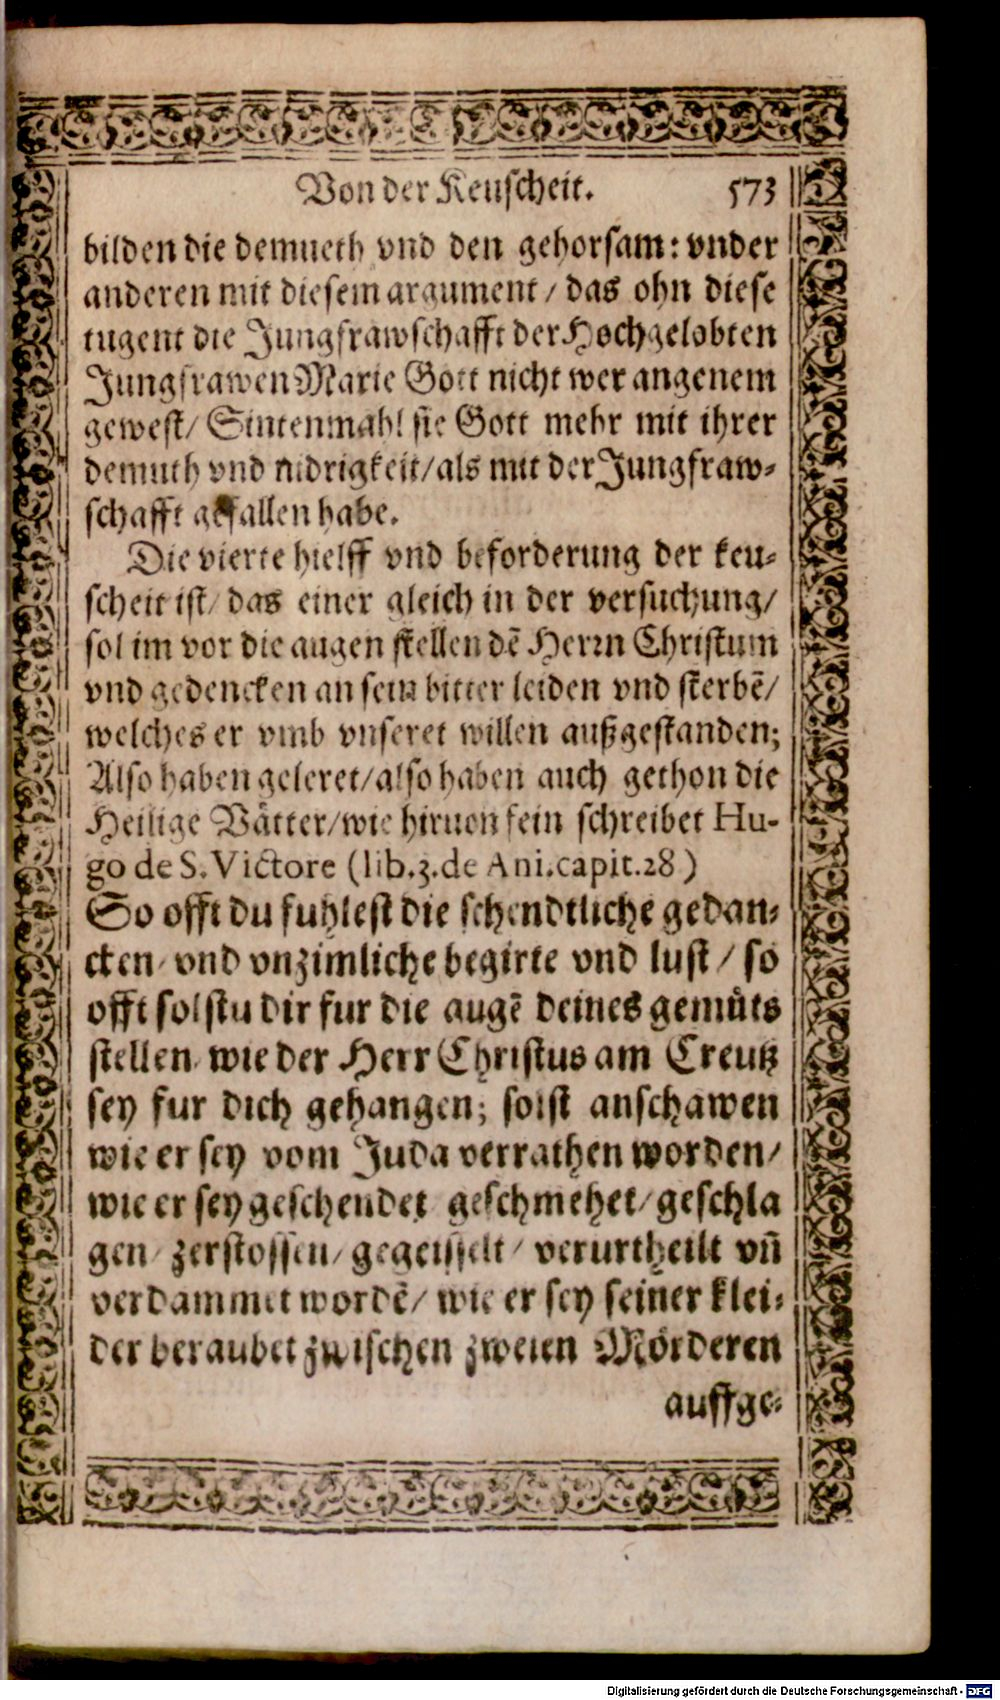 Von der Keuscheit. 573
bilden die demueth vnd den gehorsam: vnder
anderen mit diesem argument / das ohn diese
tugent die Jungfrawschafft der Hochgelobten
Jungfrawen Marie Gott nicht wer angenem
gewest / Sintenmahl sie Gott mehr mit ihrer
demuth vnd nidrigkeit / als mit der Jungfraw-
schafft gefallen habe.
Die vierte hielff vnd beforderung der keu-
scheit ist / das einer gleich in der versuchung /
sol im vor die augen stellen dē Herrn Christum
vnd gedencken an sein bitter leiden vnd sterbē /
welches er vmb vnseret willen außgestanden;
Also haben geleret / also haben auch gethon die
Heilige Vätter / wie hiruon fein schreibet Hu-
go de S. Victore (lib.3. de Ani. capit. 28)
So offt du fuhlest die schendtliche gedan-
cken / vnd vnzimliche begirte vnd lust / so
offt solstu dir fur die augē deines gemüts
stellen / wie der Herr Christus am Creutz
sey fur dich gehangen; solst anschawen
wie er sey vom Juda verrathen worden /
wie er sey geschendet / geschmehet / geschla
gen / zerstossen / gegeisselt / verurtheilt vn̄
verdammet wordē / wie er sey seiner klei-
der beraubet zwischen zweien Mörderen
auffge-
Digitalisierung gefördert durch die Deutsche Forschungsgemeinschaft - DFG